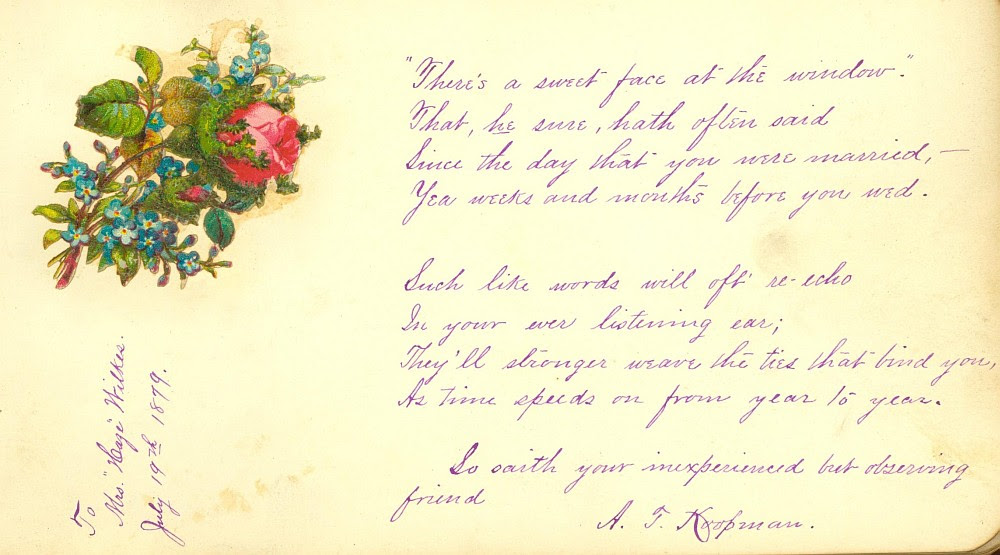 "There's a sweet face at the window."
That, he sure, hath often said
Since the day that you were married,—
Yea weeks and months before you wed.
Such like words will oft re-echo
In your ever listening ear;
They'll stronger weave the ties that bind you,
As time speeds on from year to year.
So saith your inexperienced but observing
friend
A. T. Koopman.
To
Mrs. "Haze" Wilkes.
July 19th 1899.